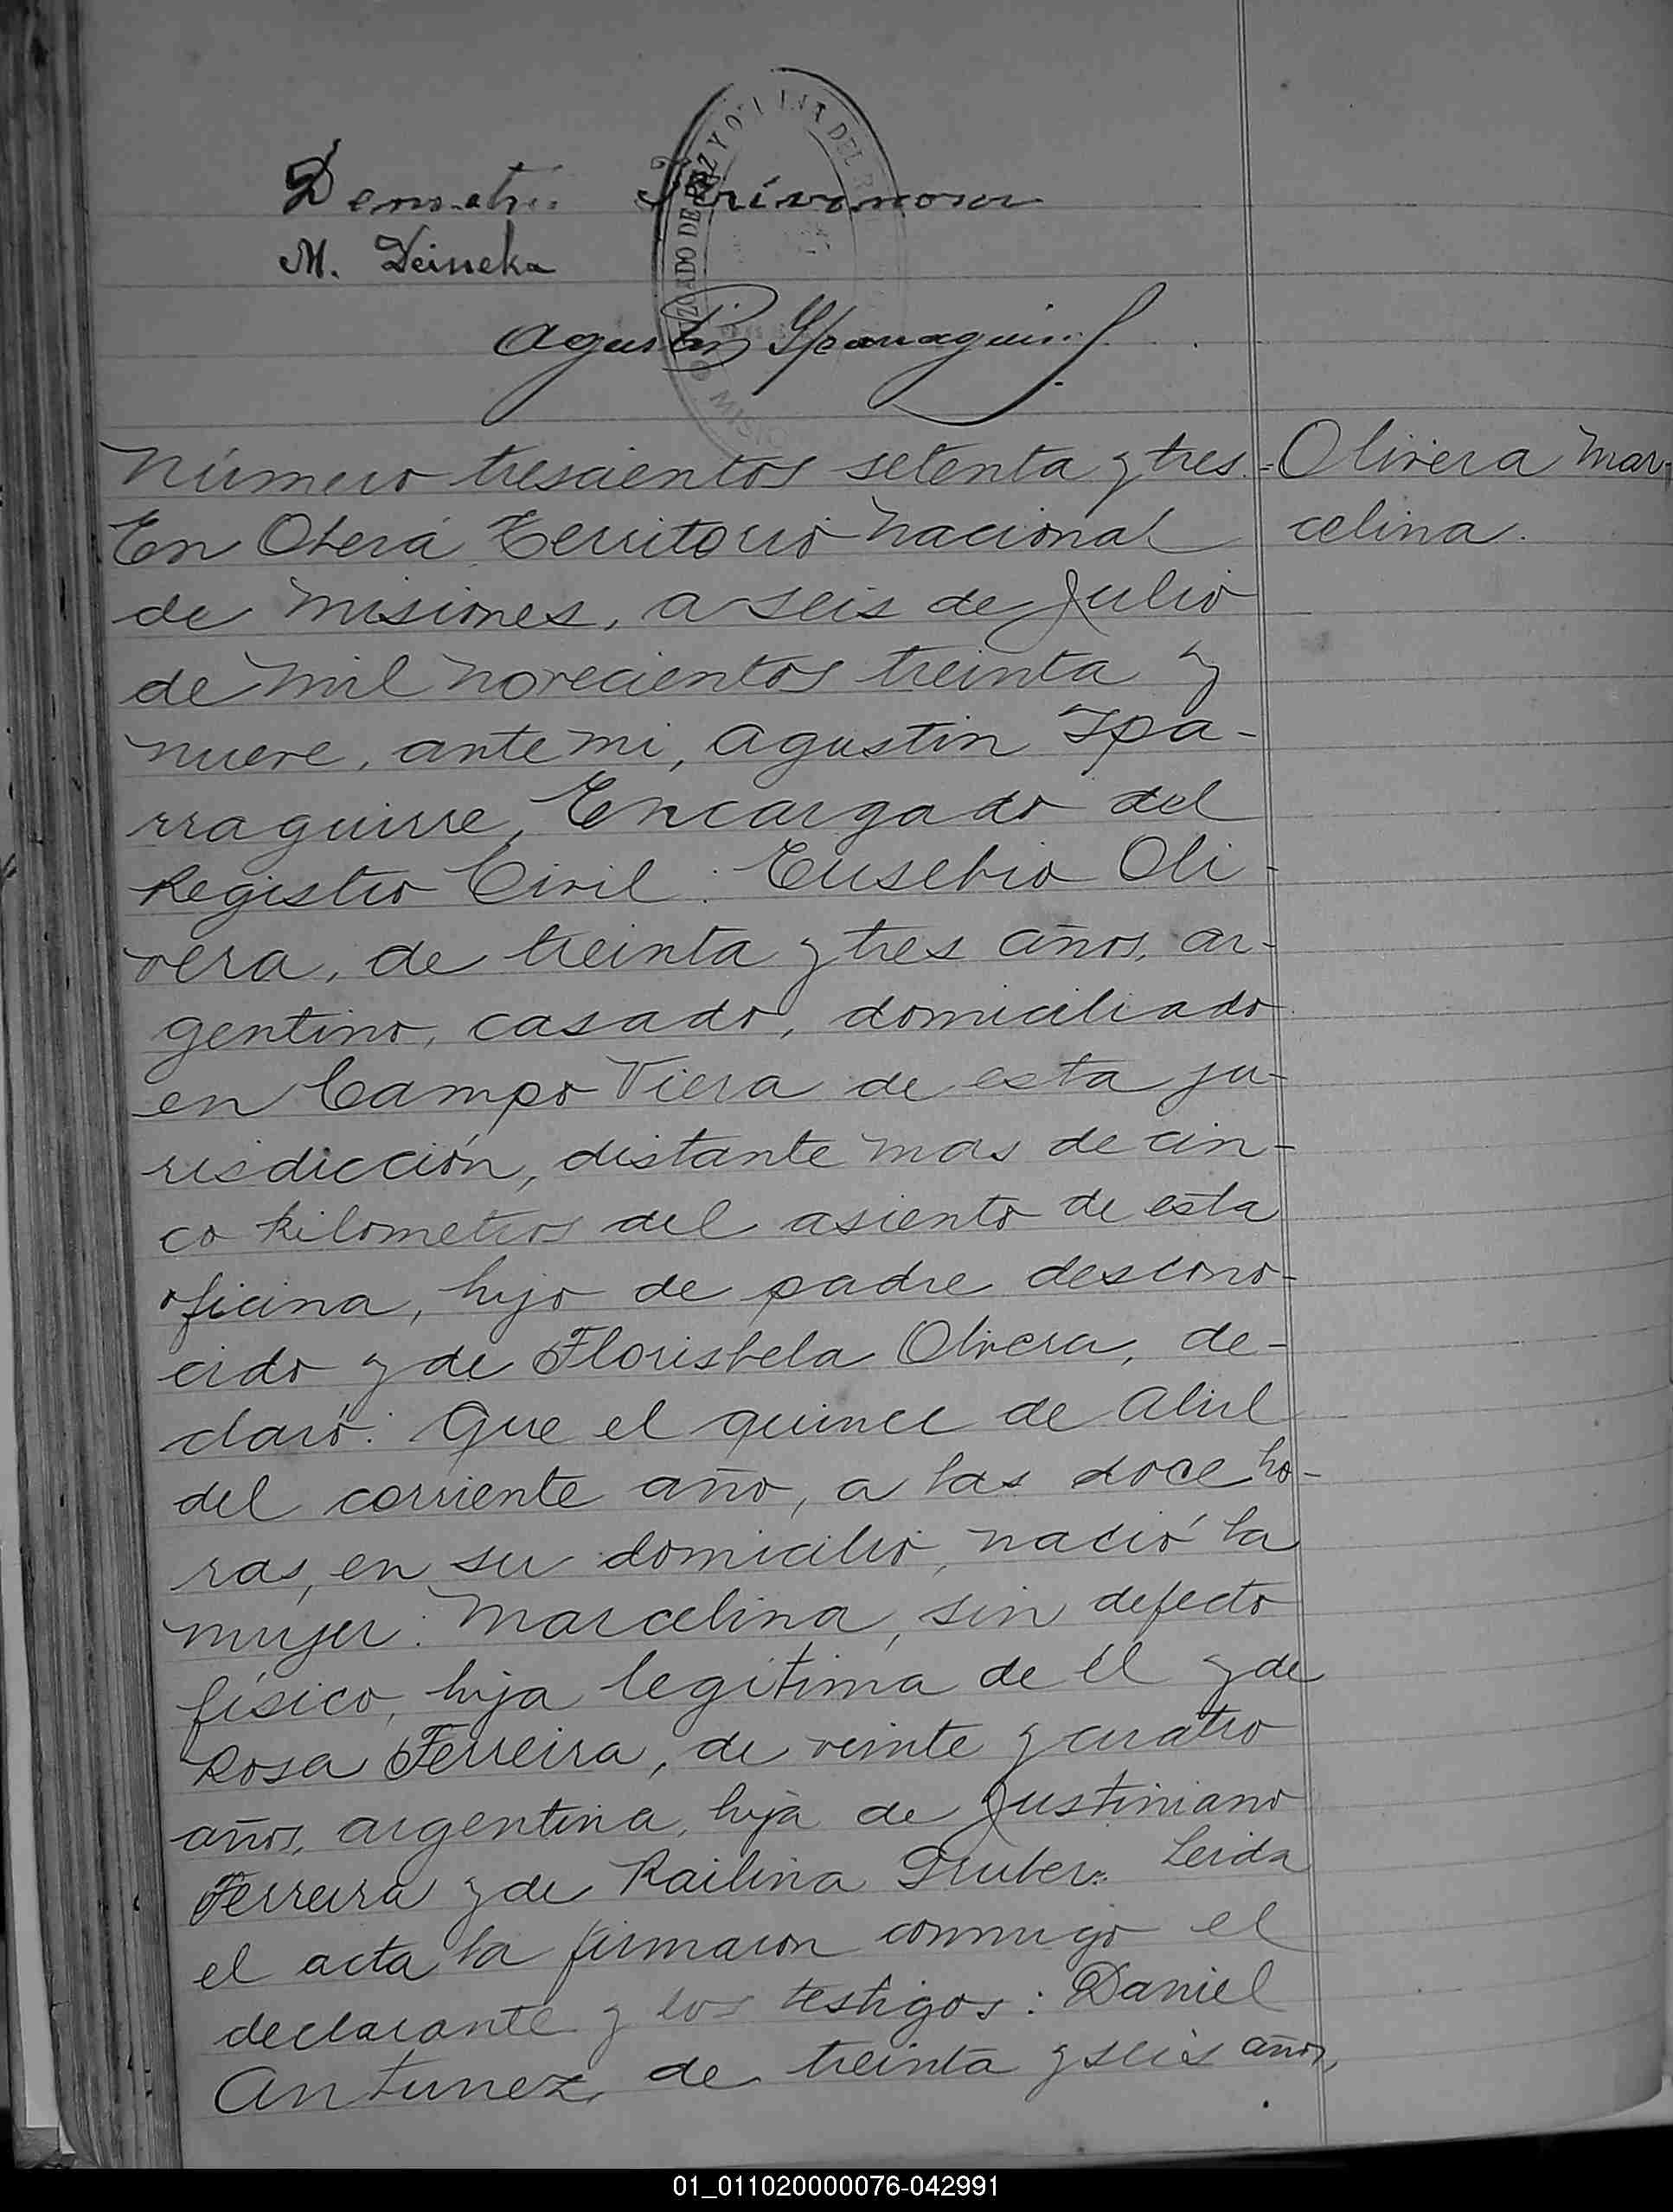 M. Deineka
Número trescientos setenta y tres.= Olivera Mar-
En Oberá Territorio Nacional celina.
de Misiones, a seis de Julio
de mil novecientos treinta y
nueve, ante mi, Agustin Ipa-
rraguirre, Encargado del
Registro Civil: Eusebio Oli-
vera, de treinta y tres años, ar-
gentino, casado, domiciliado
en Campo Viera de esta ju-
risdicción, distante mas de cin-
co kilometros del asiento de esta
oficina, hijo de padre descono-
cido y de Florisbela Olivera, de-
claró: Que el quince de Abril
del corriente año, a las doce ho-
ras, en su domicilio, nació la
mujer: Marcelina, sin defecto
físico, hija legítima de él y de
Rosa Ferreira, de veinte y cuatro
años, argentina, hija de Justiniano
Ferreira y de Railina Gruber. Leida
el acta la firmaron conmigo el
declarante y los testigos: Daniel
Antunez, de treinta y seis años,
01_011020000076-042991